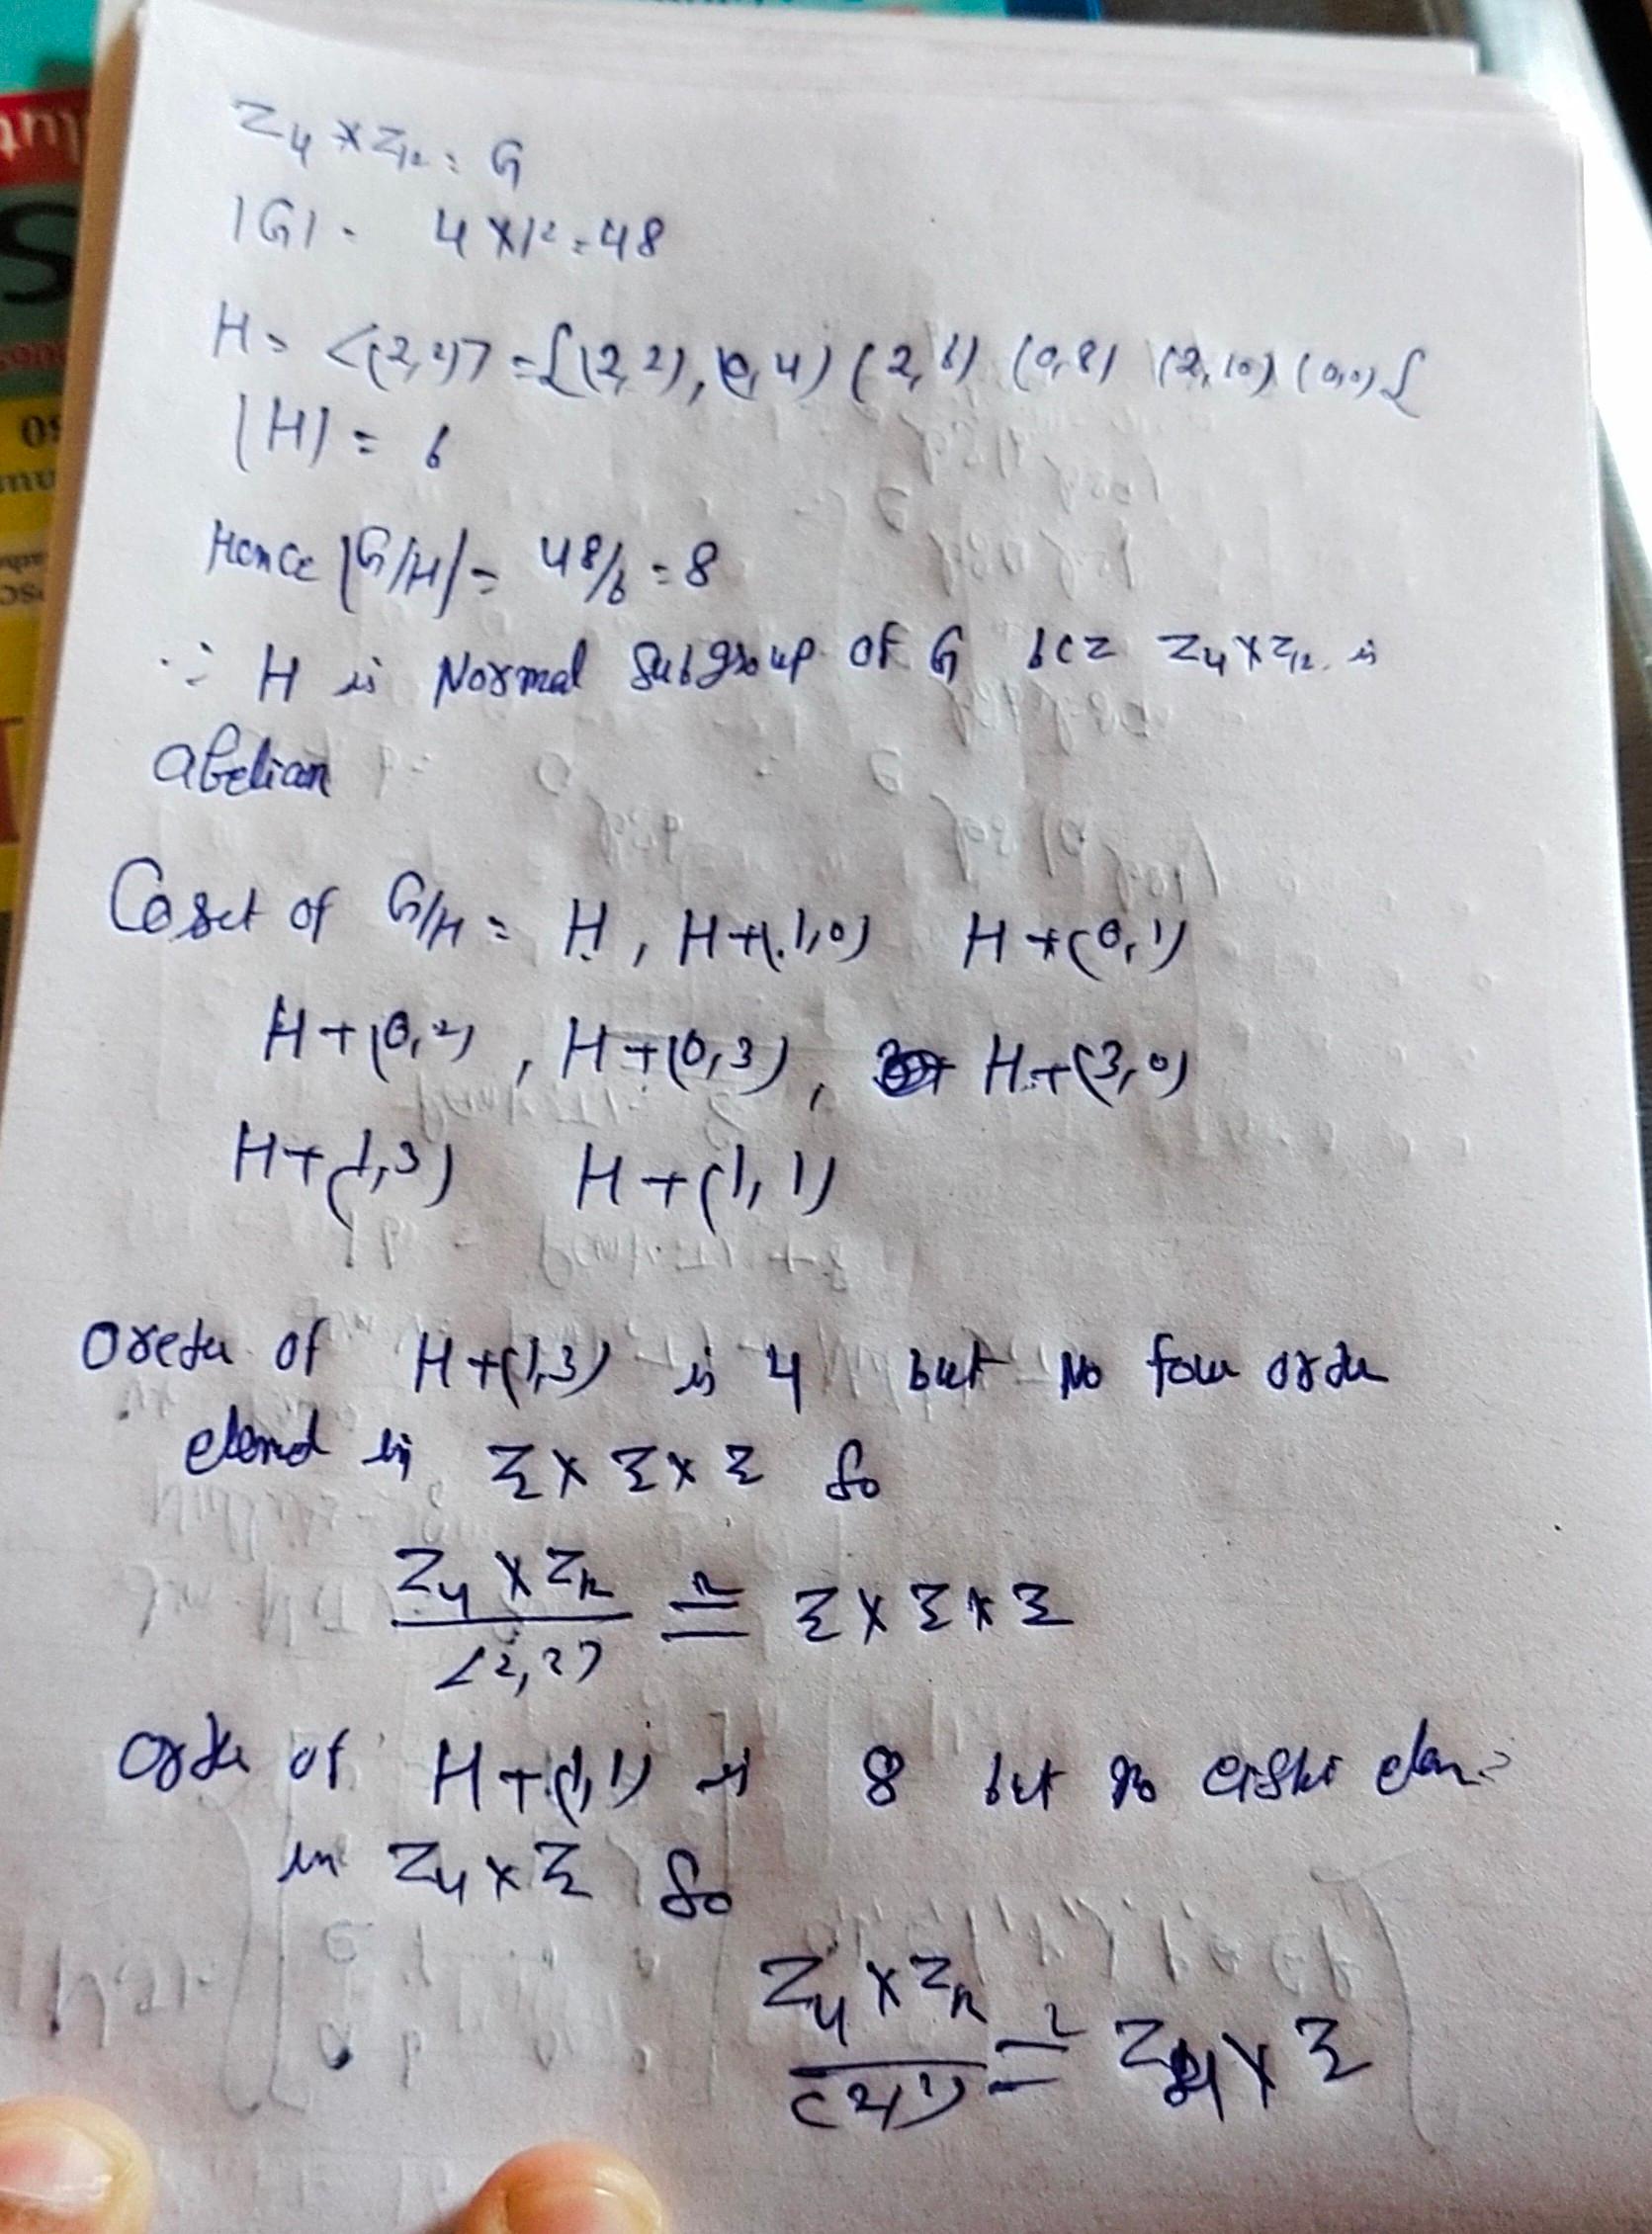 Z₄ × Z₁₂ = G
|G| = 4 × 12 = 48
H = <(2,2)> = {(2,2), (0,4) (2,6) (0,8) (2,10) (0,0)}
|H| = 6
Hence |G/H| = 48/6 = 8
∵ H is Normal Subgroup of G bcz Z₄ × Z₁₂ is
abelian
Coset of G/H = H, H+(1,0) H+(0,1)
H+(0,2), H+(0,3), H+(3,0)
H+(1,3) H+(1,1)
Order of H+(1,3) is 4 but no four order
element in Z₂ × Z₂ × Z₂ So
Z₄ × Z₁₂ / <2,2> ≅ Z₂ × Z₂ × Z₂
order of H+(1,1) is 8 but no eight elem
in Z₄ × Z₂ So
Z₄ × Z₁₂ / ≅ × Z₂